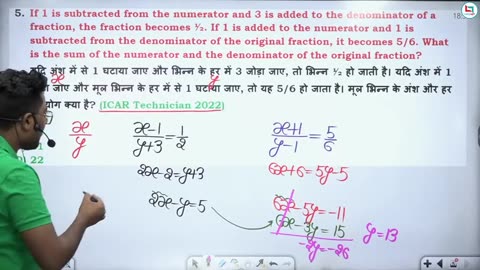 5. If 1 is subtracted from the numerator and 3 is added to the denominator of a
fraction, the fraction becomes ½. If 1 is added to the numerator and 1 is
subtracted from the denominator of the original fraction, it becomes 5/6. What
is the sum of the numerator and the denominator of the original fraction?
यदि अंश में से 1 घटाया जाए और भिन्न के हर में 3 जोड़ा जाए, तो भिन्न ½ हो जाती है। यदि अंश में 1
जाए और मूल भिन्न के हर में से 1 घटाया जाए, तो यह 5/6 हो जाता है। मूल भिन्न के अंश और हर
क्या है? (ICAR Technician 2022)
x
y
x/y
x-1/y+3=1/2
x+1/y-1=5/6
2x-2=y+3
6x+6=5y-5
2x-y=5
6x-5y=-11
6x-3y=15
-2y=-26
y=13
22